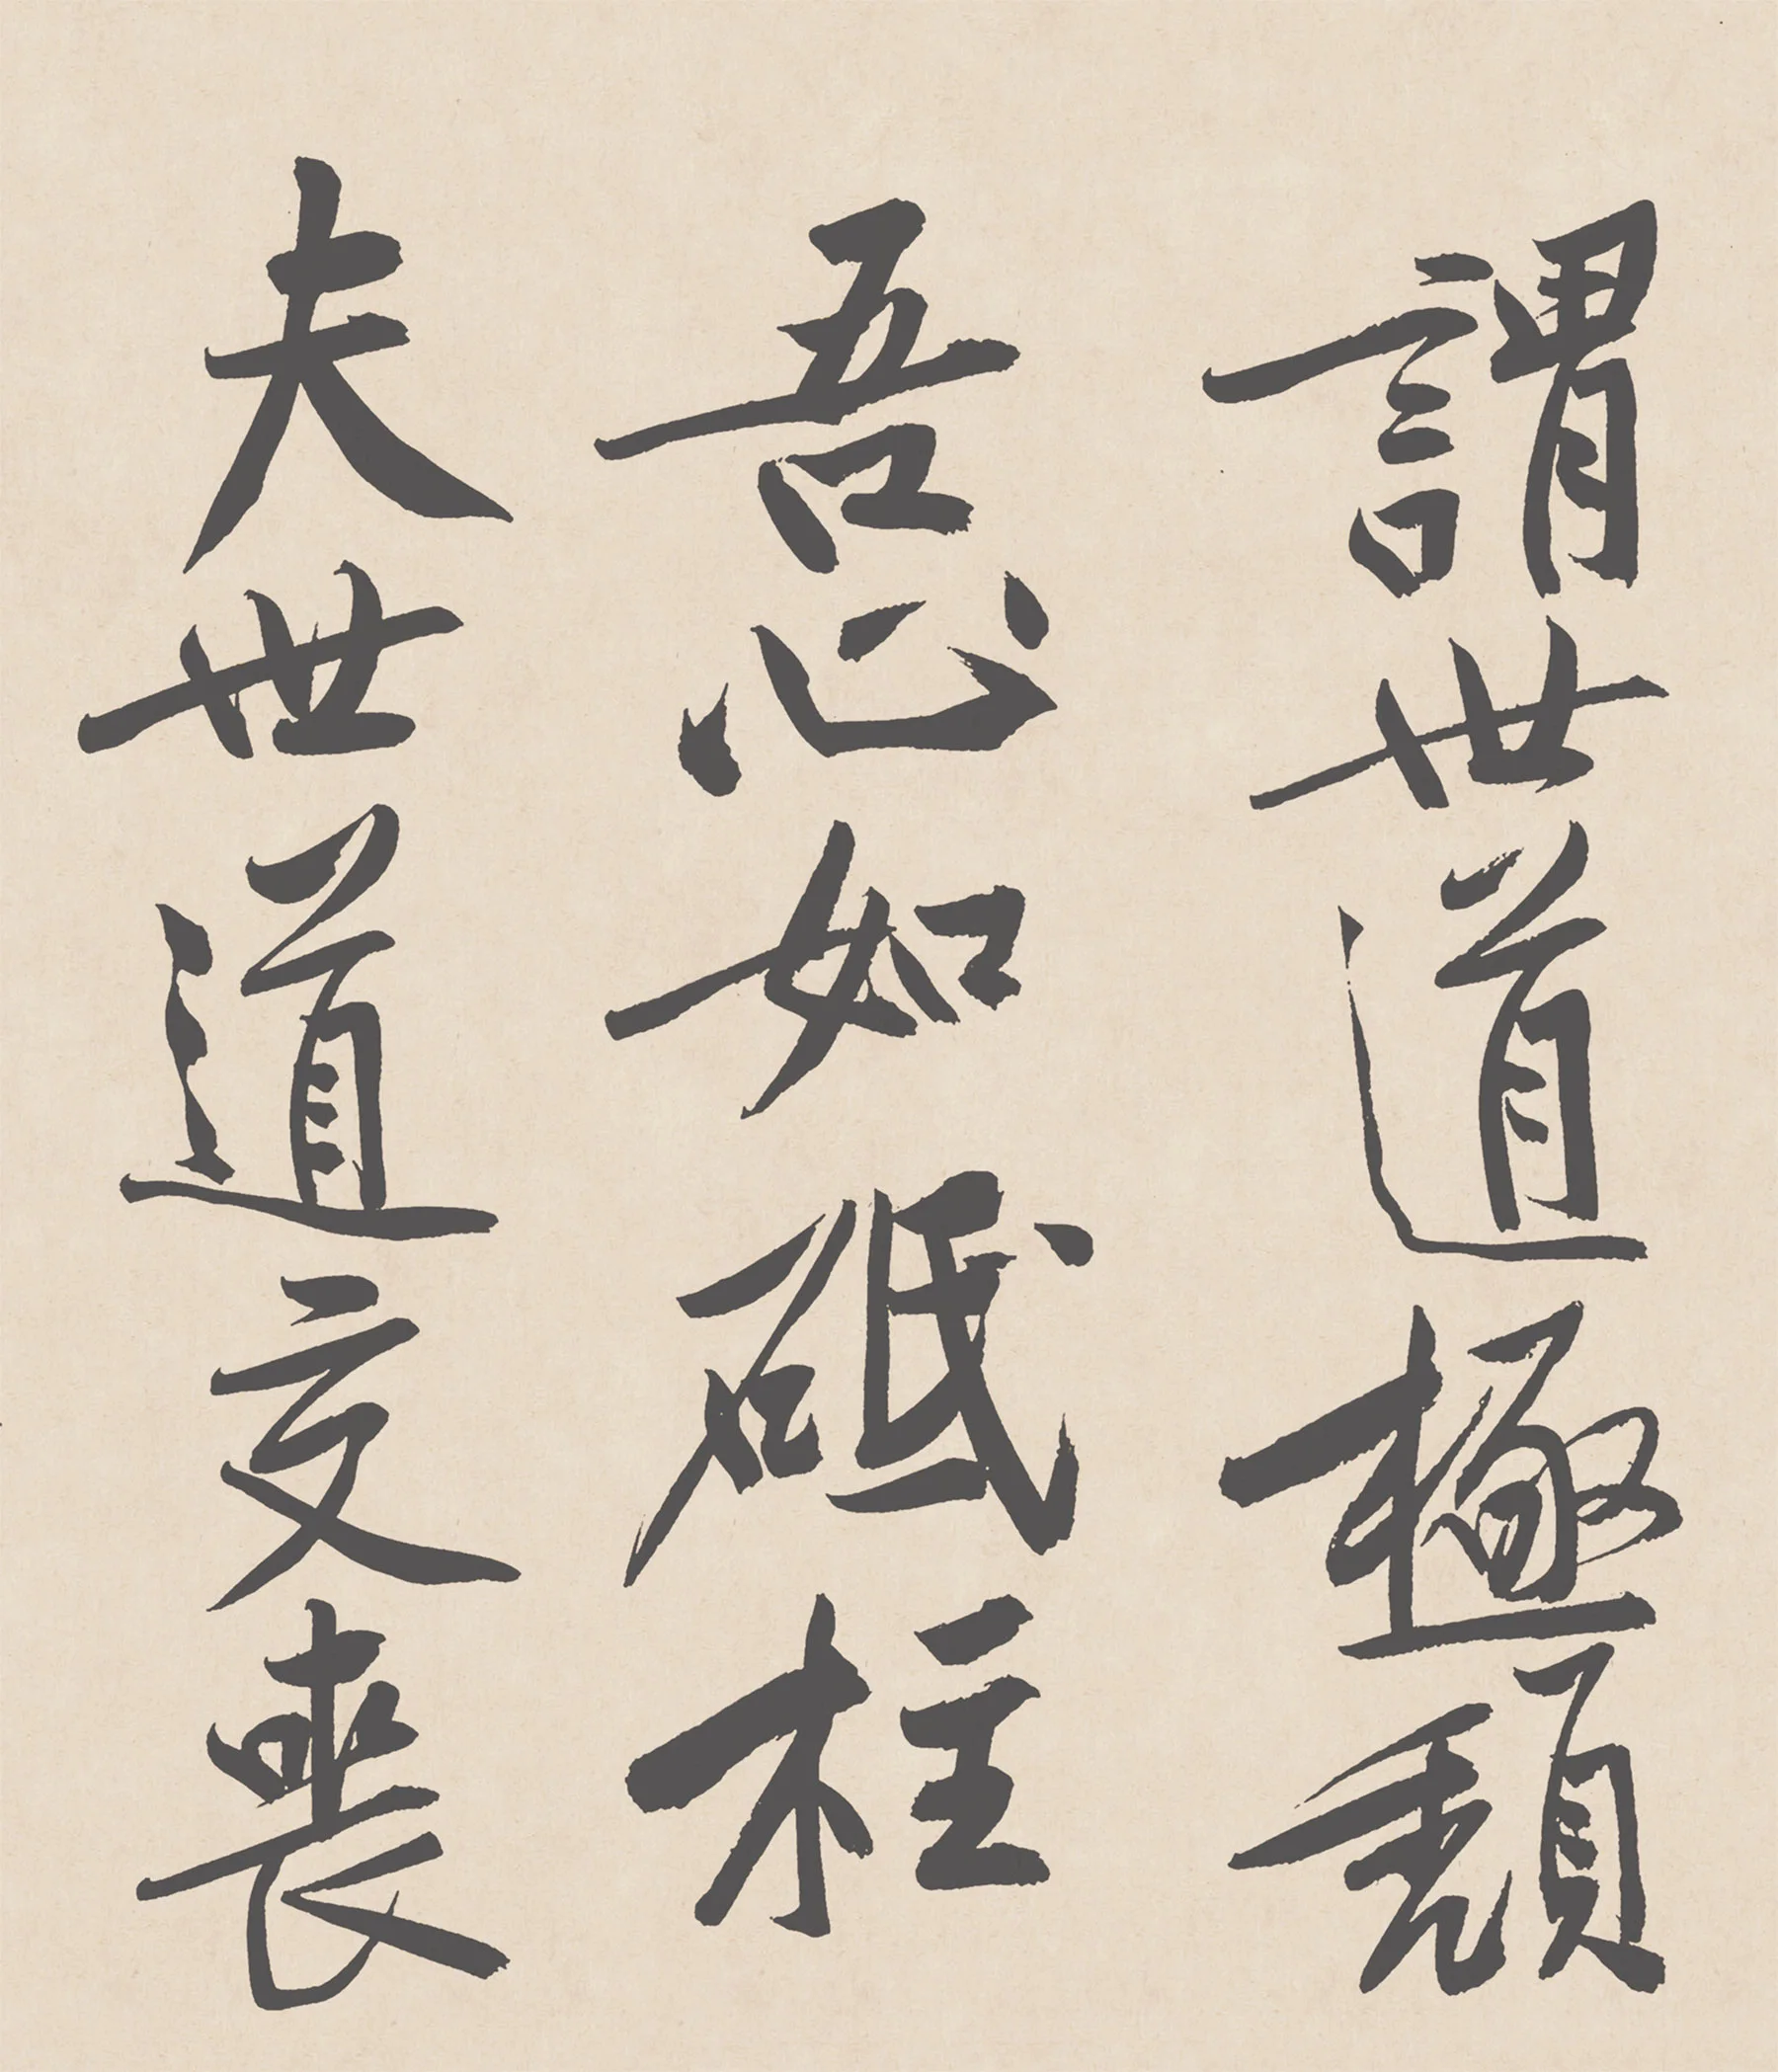 謂世道極頹
吾心如砥柱
夫世道交喪